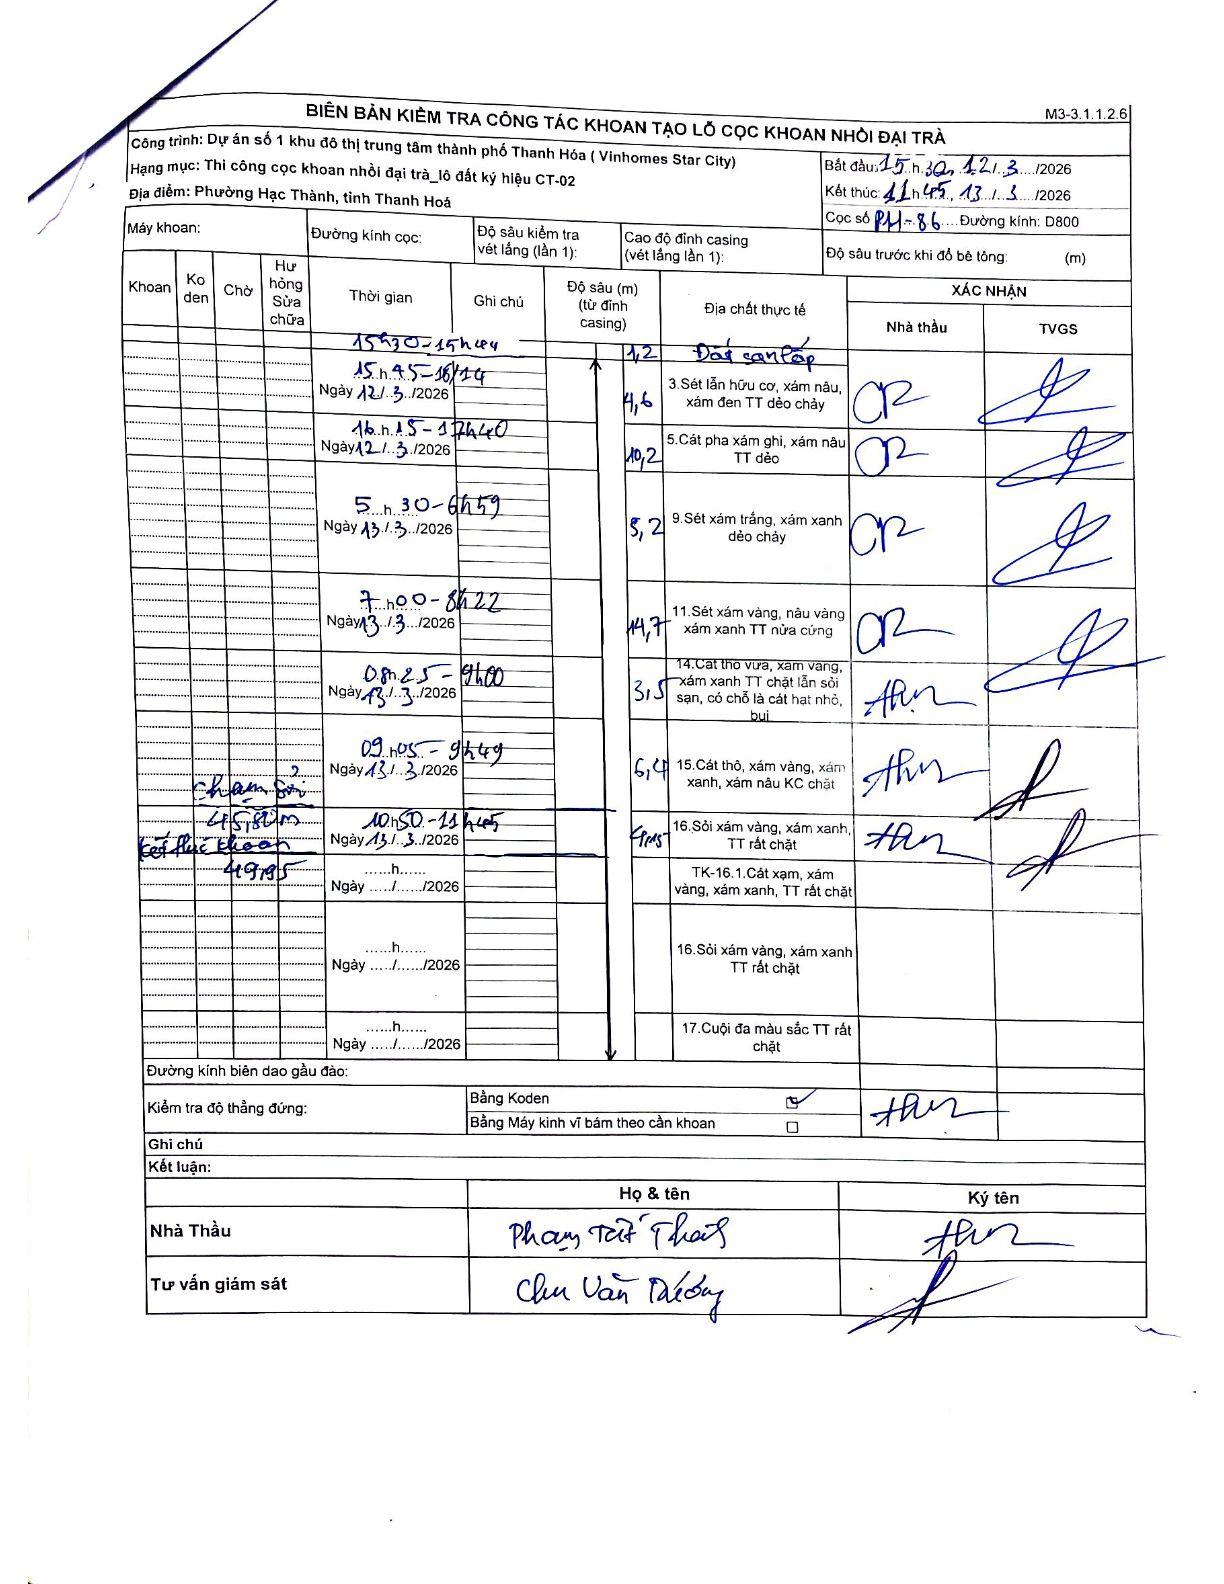 M3-3.1.1.2.6
BIÊN BẢN KIỂM TRA CÔNG TÁC KHOAN TẠO LỖ CỌC KHOAN NHỒI ĐẠI TRÀ
Công trình: Dự án số 1 khu đô thị trung tâm thành phố Thanh Hóa ( Vinhomes Star City)
Hạng mục: Thi công cọc khoan nhồi đại trà_lô đất ký hiệu CT-02
Địa điểm: Phường Hạc Thành, tỉnh Thanh Hoá
Bắt đầu: 15 h 30, 12/ 3 /2026
Kết thúc: 11 h 45, 13/ 3 /2026
Cọc số P11-86 Đường kính: D800
Máy khoan:
Đường kính cọc:
Độ sâu kiểm tra
vét lắng (lần 1):
Cao độ đỉnh casing
(vét lắng lần 1):
Độ sâu trước khi đổ bê tông: (m)
Khoan
Ko
den
Chờ
Hư
hỏng
Sửa
chữa
Thời gian
Ghi chú
Độ sâu (m)
(từ đỉnh
casing)
Địa chất thực tế
XÁC NHẬN
Nhà thầu
TVGS
15h30-15h44
1,2 Đất san lấp
15 h 45-16/14
Ngày 12/ 3 /2026
4,6
3.Sét lẫn hữu cơ, xám nâu,
xám đen TT dẻo chảy
16 h 15-17h40
Ngày 12/ 3 /2026
10,2
5.Cát pha xám ghi, xám nâu
TT dẻo
5 h 30-6h59
Ngày 13/ 3 /2026
5,2
9.Sét xám trắng, xám xanh
dẻo chảy
7 h00-8h22
Ngày 13/ 3 /2026
14,7
11.Sét xám vàng, nâu vàng
xám xanh TT nửa cứng
08h 25-9h00
Ngày 13/ 3 /2026
3,5
14.Cát thô vừa, xám vàng,
xám xanh TT chặt lẫn sỏi
sạn, có chỗ là cát hạt nhỏ,
bụi
09 h05-9h49
Ngày 13/ 3 /2026
6,4
15.Cát thô, xám vàng, xám
xanh, xám nâu KC chặt
chạm sỏi
45,80m
10h50-11h45
Ngày 13/ 3 /2026
4,15
16.Sỏi xám vàng, xám xanh,
TT rất chặt
kết thúc khoan
49,95
......h......
Ngày ...../....../2026
TK-16.1.Cát xạm, xám
vàng, xám xanh, TT rất chặt
......h......
Ngày ...../....../2026
16.Sỏi xám vàng, xám xanh
TT rất chặt
......h......
Ngày ...../....../2026
17.Cuội đa màu sắc TT rất
chặt
Đường kính biên dao gầu đào:
Kiểm tra độ thẳng đứng:
Bằng Koden
Bằng Máy kinh vĩ bám theo cần khoan
Ghi chú
Kết luận:
Họ & tên
Ký tên
Nhà Thầu
Phạm Tất Thành
Tư vấn giám sát
Chu Văn Dương